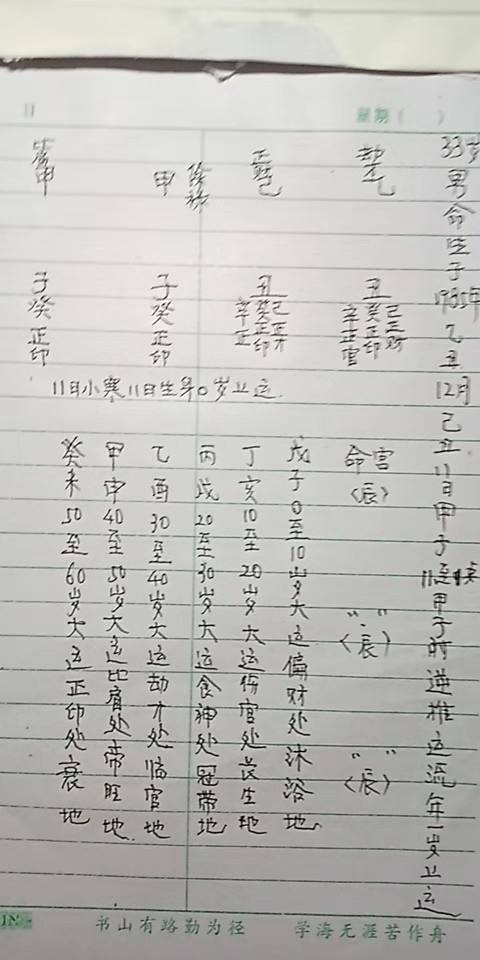 星期（ ）
33岁男命生于1985年乙丑12月己丑11日甲子11点甲子时逆推运流年一岁上运
劫才乙
丑
辛癸己
正正正
官印财
正财己
丑
辛癸己
正正正
官印才
甲
子
癸
正印
甲
子
癸
正印
11日小寒11日生算0岁上运.
命宫
〈辰〉
〈辰〉
〈辰〉
戊子0至10岁大运偏财处沐浴地
丁亥10至20岁大运伤官处长生地
丙戌20至30岁大运食神处冠带地
乙酉30至40岁大运劫才处临官地
甲申40至50岁大运比肩处帝旺地
癸未50至60岁大运正印处衰地
书山有路勤为径 学海无涯苦作舟